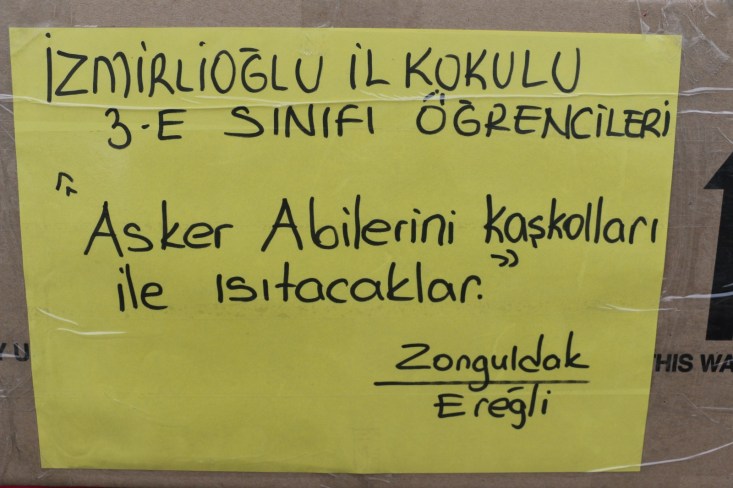 İZMİRLİOĞLU İLKOKULU
3-E SINIFI ÖĞRENCİLERİ
"Asker Abilerini kaşkolları
ile ısıtacaklar."
Zonguldak
Ereğli
THIS WA